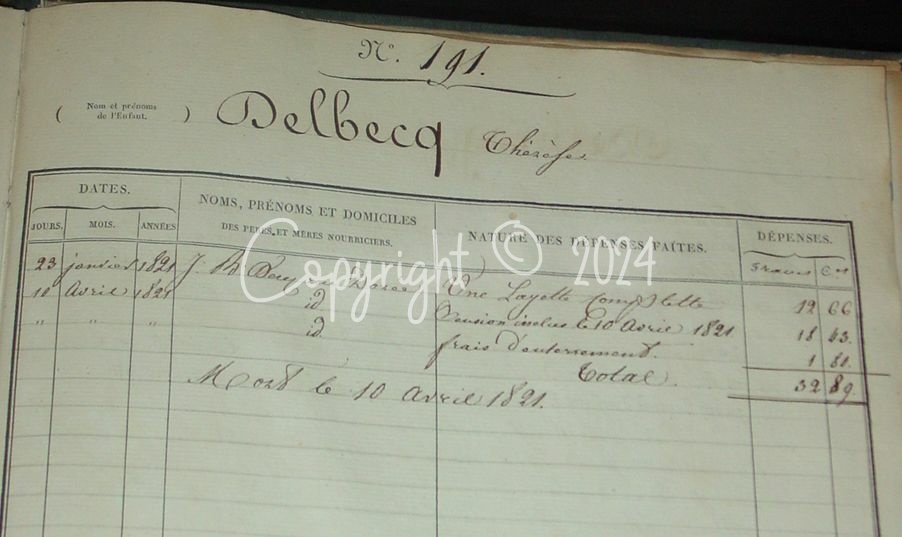 N.º 191.
( Nom et prénoms de l'Enfant. ) Delbecq Thérèse
DATES. NOMS, PRÉNOMS ET DOMICILES DES PERES ET MÈRES NOURRICIERS. NATURE DES DÉPENSES FAITES. DÉPENSES.
JOURS. MOIS. ANNÉES francs Cs
23 janvier 1821 J. Bte Une Layette complette 12 66
10 Avril 1821 id. Pension inclus le 10 Avril 1821 18 43
" " " id. frais d'enterrement. 1 80.
Total. 32 89.
Mort le 10 avril 1821.
Copyright © 2024